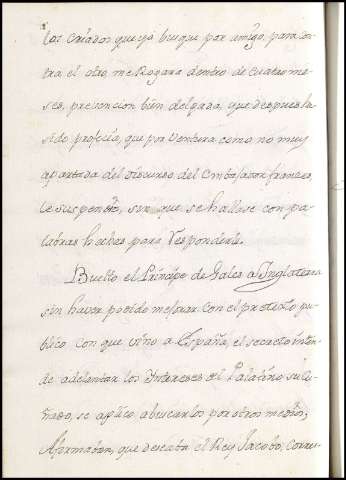 los criados que yá busque por amigo, para con-
tra el otro, me Rogara dentro de cuatro me-
ses, prevencion bien delgada, que despues ha
sido profecia, que por ventura como no muy
apartada del discurso del Embaxador frances,
le suspendió, sin que se hallase con pa-
labras hechas para responderle.
Buelto el Principe de Gales a Inglaterra
sin haver podido mejorar con el pretexto pu-
blico con que vino a España, el secreto inten-
de adelantar los Intereses del Palatino su Cu-
ñado, se aplicó abuscarlos por otros medios;
Afirmaban, que deseaba el Rey Jacobo, Corres-